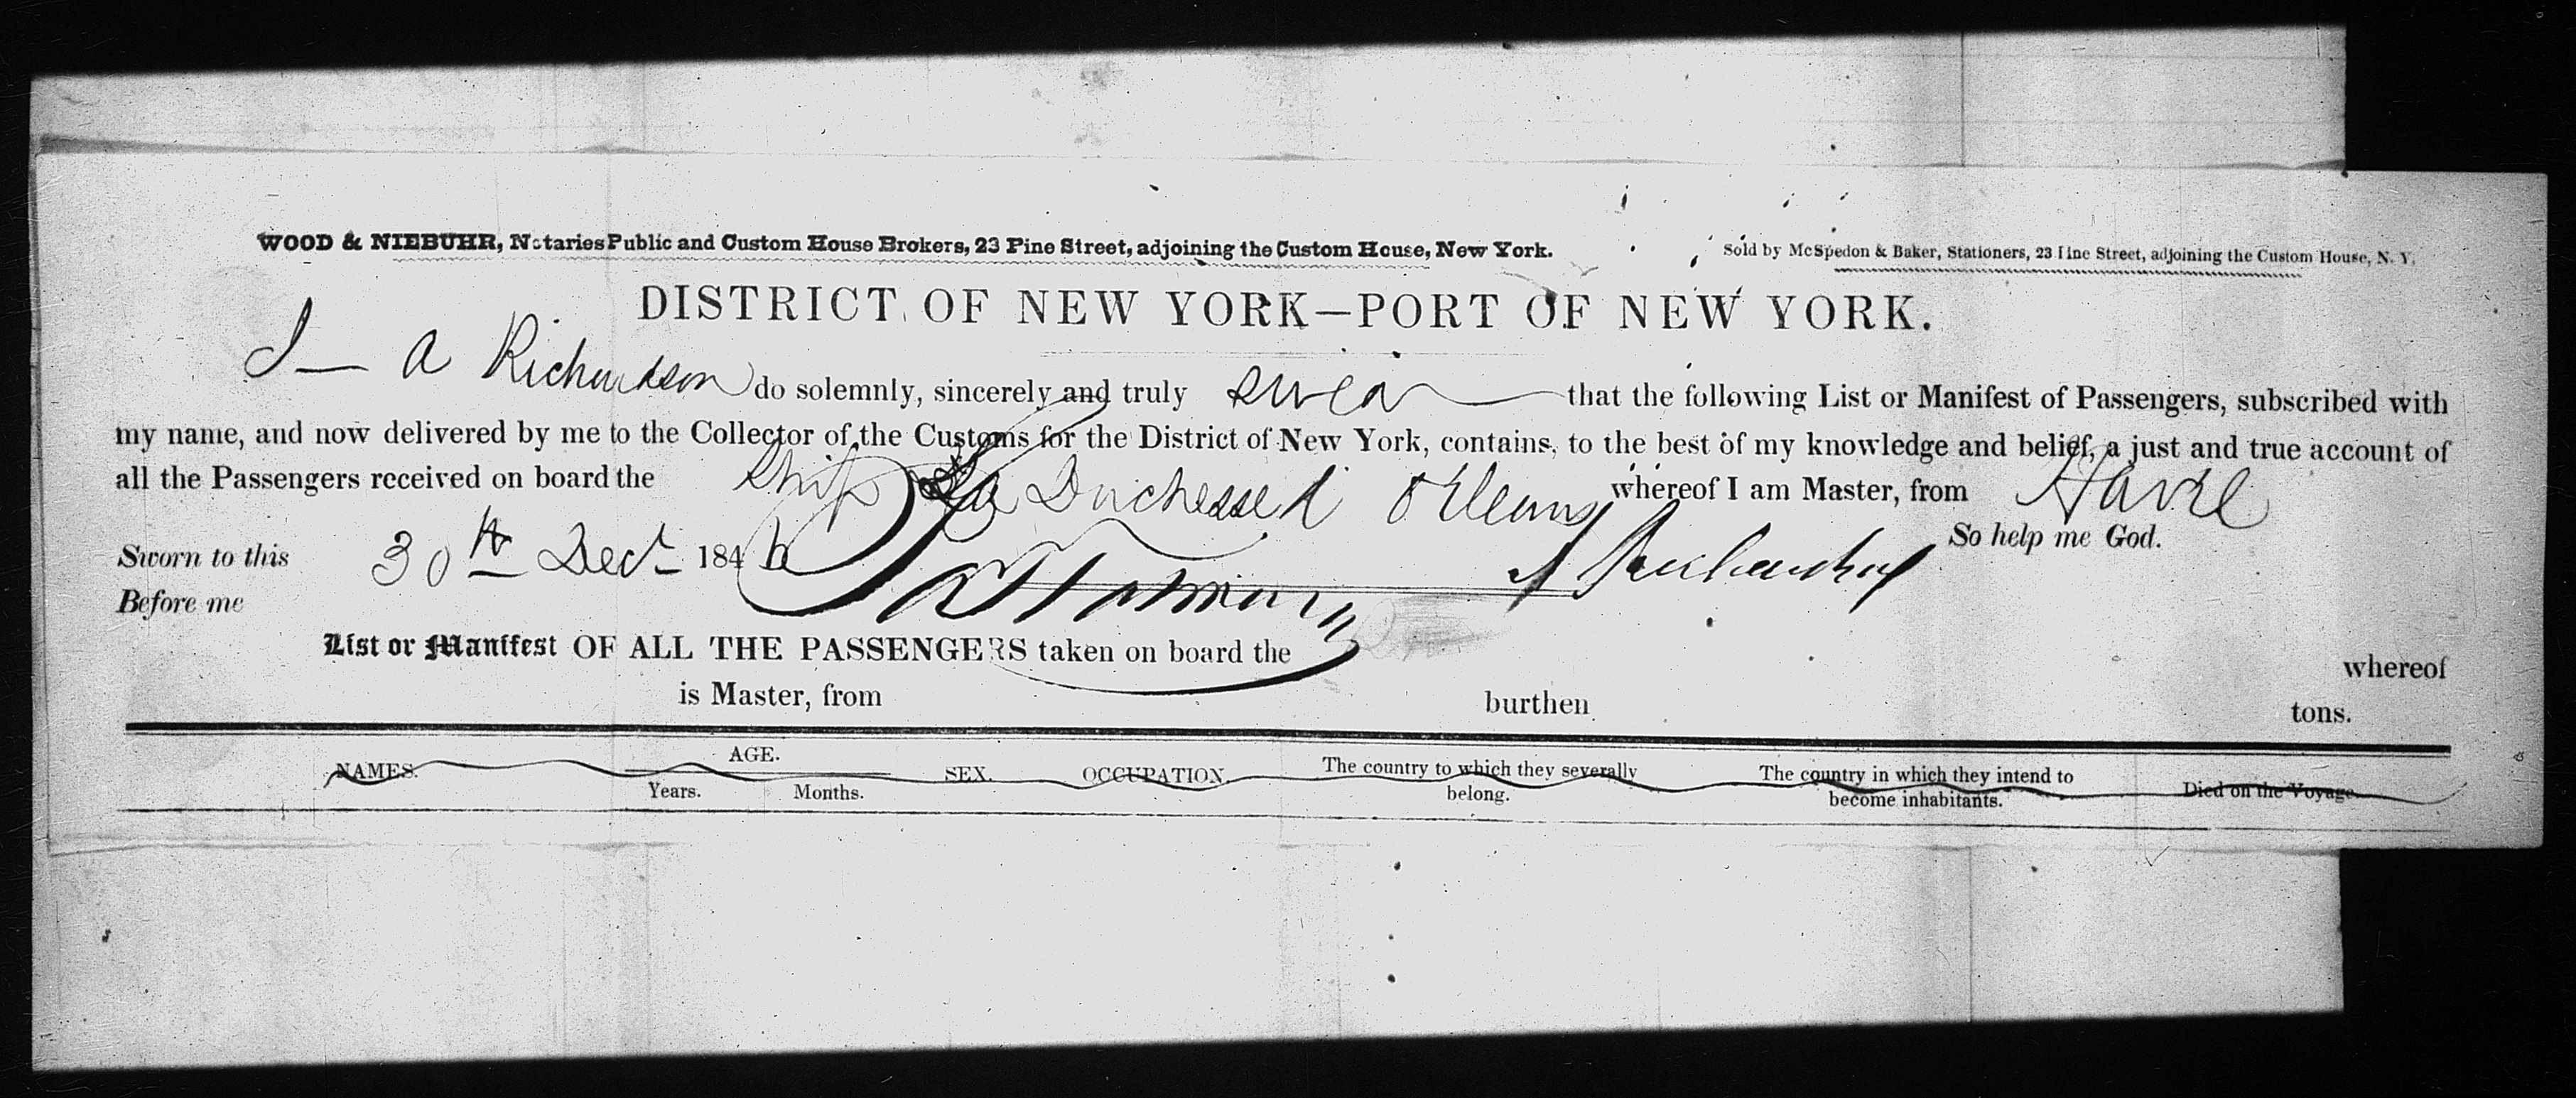 WOOD & NIEBUHR, Notaries Public and Custom House Brokers, 23 Pine Street, adjoining the Custom House, New York.
Sold by McSpedon & Baker, Stationers, 23 Pine Street, adjoining the Custom House, N. Y.
DISTRICT OF NEW YORK—PORT OF NEW YORK.
I — A Richardson do solemnly, sincerely and truly swear — that the following List or Manifest of Passengers, subscribed with
my name, and now delivered by me to the Collector of the Customs for the District of New York, contains, to the best of my knowledge and belief, a just and true account of
all the Passengers received on board the Ship La Duchesse d Orleans whereof I am Master, from Havre
So help me God.
Sworn to this 30th Dec 1846 A Richardson
Before me
List or Manifest OF ALL THE PASSENGERS taken on board the whereof
is Master, from burthen tons.
NAMES. AGE. SEX. OCCUPATION. The country to which they severally belong. The country in which they intend to become inhabitants. Died on the Voyage.
Years. Months.